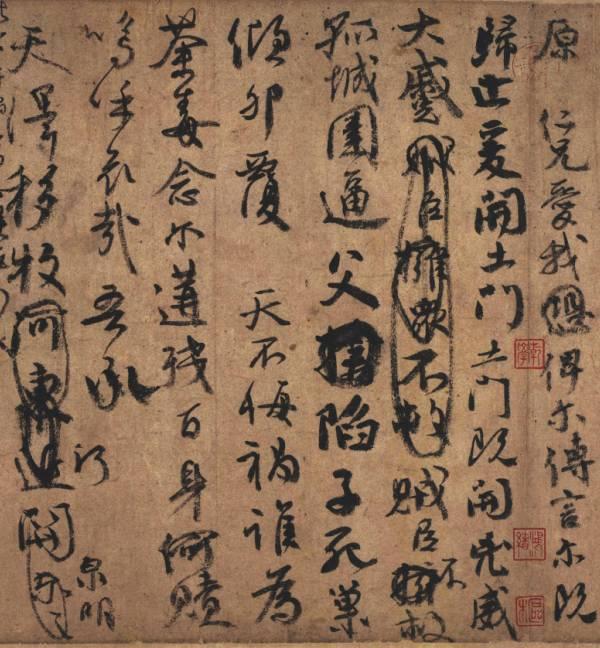 原 仁兄愛我恐俾爾傳言爾既
歸止爰開土門土門既開兇威
大蹙賊臣擁眾不救賊臣不擁救
孤城圍逼父擒陷子死巢
傾卵覆 天不悔禍誰為
荼毒念爾遘殘百身何贖
嗚呼哀哉吾承
泉明
天澤移牧河東近河關